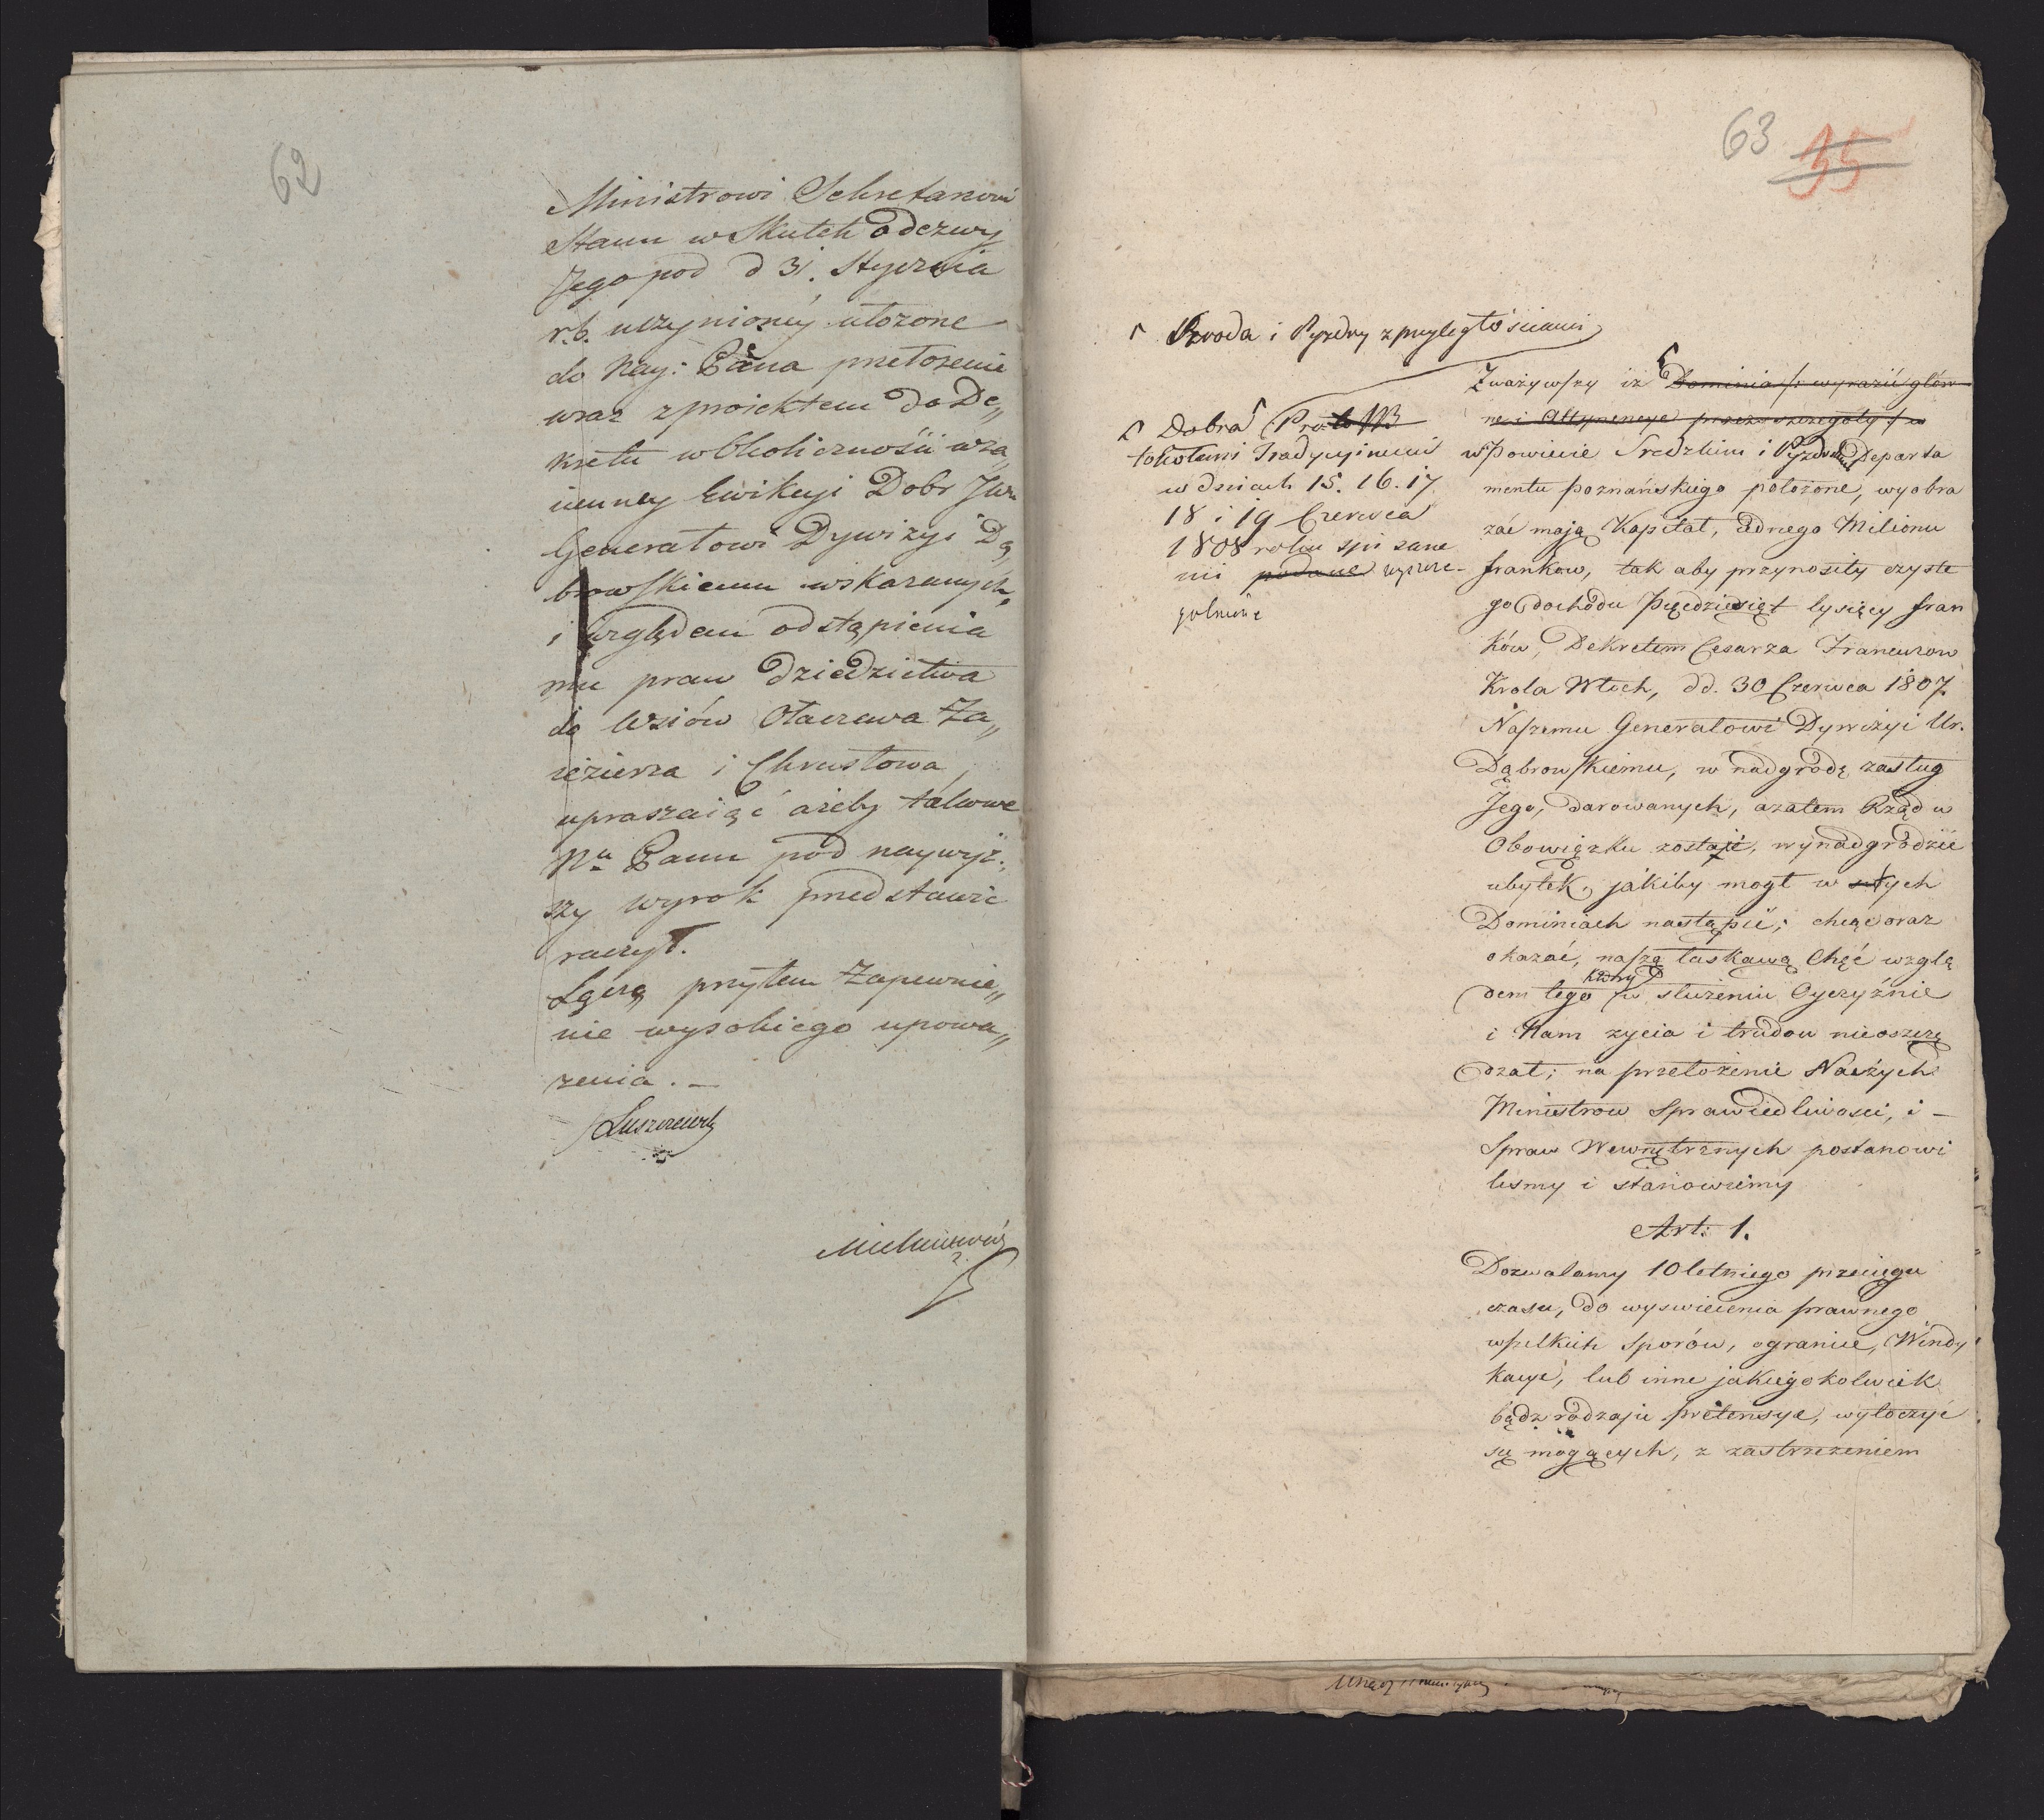 62
Ministrowi Sekretarzowi
Stanu w Skutek odezwy
Jego pod d 31. Stycznia
r. b. uczynioney ułożone
do Nay: Pana przełożenie
wraz z proiektem do De„
kretu w Okoliczności wza
iemney Ewikcyi Dobr JW.
Generałowi Dywizyi Dą
browskiemu wskazanych,
i względem odstąpienia
mu praw dziedzictwa
do Wsiów Otaczewa Za„
iezierza i Chrustowa,
upraszaiąć ażeby takowe
Nu Panu pod naywyż„
szy wyrok przedstawić
raczył.
Łączę przytem Zapewnie„
nie wysokiego upowa„
żenia. —
Łuszczewsk
63 35
Szroda i Pyzdry z przyległościami
Dobra Pro
tokołami Tradycyinemi
w dniach 15. 16. 17.
18 i 19 Czerwca
1808 roku spisane
mi podane wyszcze-
gulnione
Zważywszy iż Dominia /: wyrazić głów
ne i Attynencye przez szczegoły :/ w
w Powiecie Sredzkim i Pyzdrskim Departa
mentu poznańskiego położone, wyobra
zać mają Kapitał, iednego Milionu
frankow, tak aby przynosiły czyste
go dochodu Pięćdziesiąt tysięcy fran
ków, Dekretem Cesarza Francuzow
Krola Włoch, dd. 30 Czerwca 1807.
Naszemu Generałowi Dywizyi Ur.
Dąbrowskiemu, w nadgrodę zasług
Jego, darowanych, azatem Rząd w
Obowiązku zostaje, wynadgrodzić
ubytek, jakiby mogł w tych
Dominiach nastąpić; chcąc oraz
okazać, naszą łaskawą Chęć wzglę
dem tego który w służeniu Oyczyźnie
i Nam zycia i trudow nieoszczę
dzał; na przełożenie Naszych
Ministrow Sprawiedliwosci, i —
Spraw Wewnętrznych postanowi
lismy i stanowiemy
Art: 1.
Dozwalamy 10 letniego przeciągu
czasu, do wyswiecenia prawnego
wszelkich sporów, ogranice, Windy
kacye, lub inne jakiegokolwiek
bądz rodzaju pretensye, wytoczyć
się mogących, z zastrzeżeniem